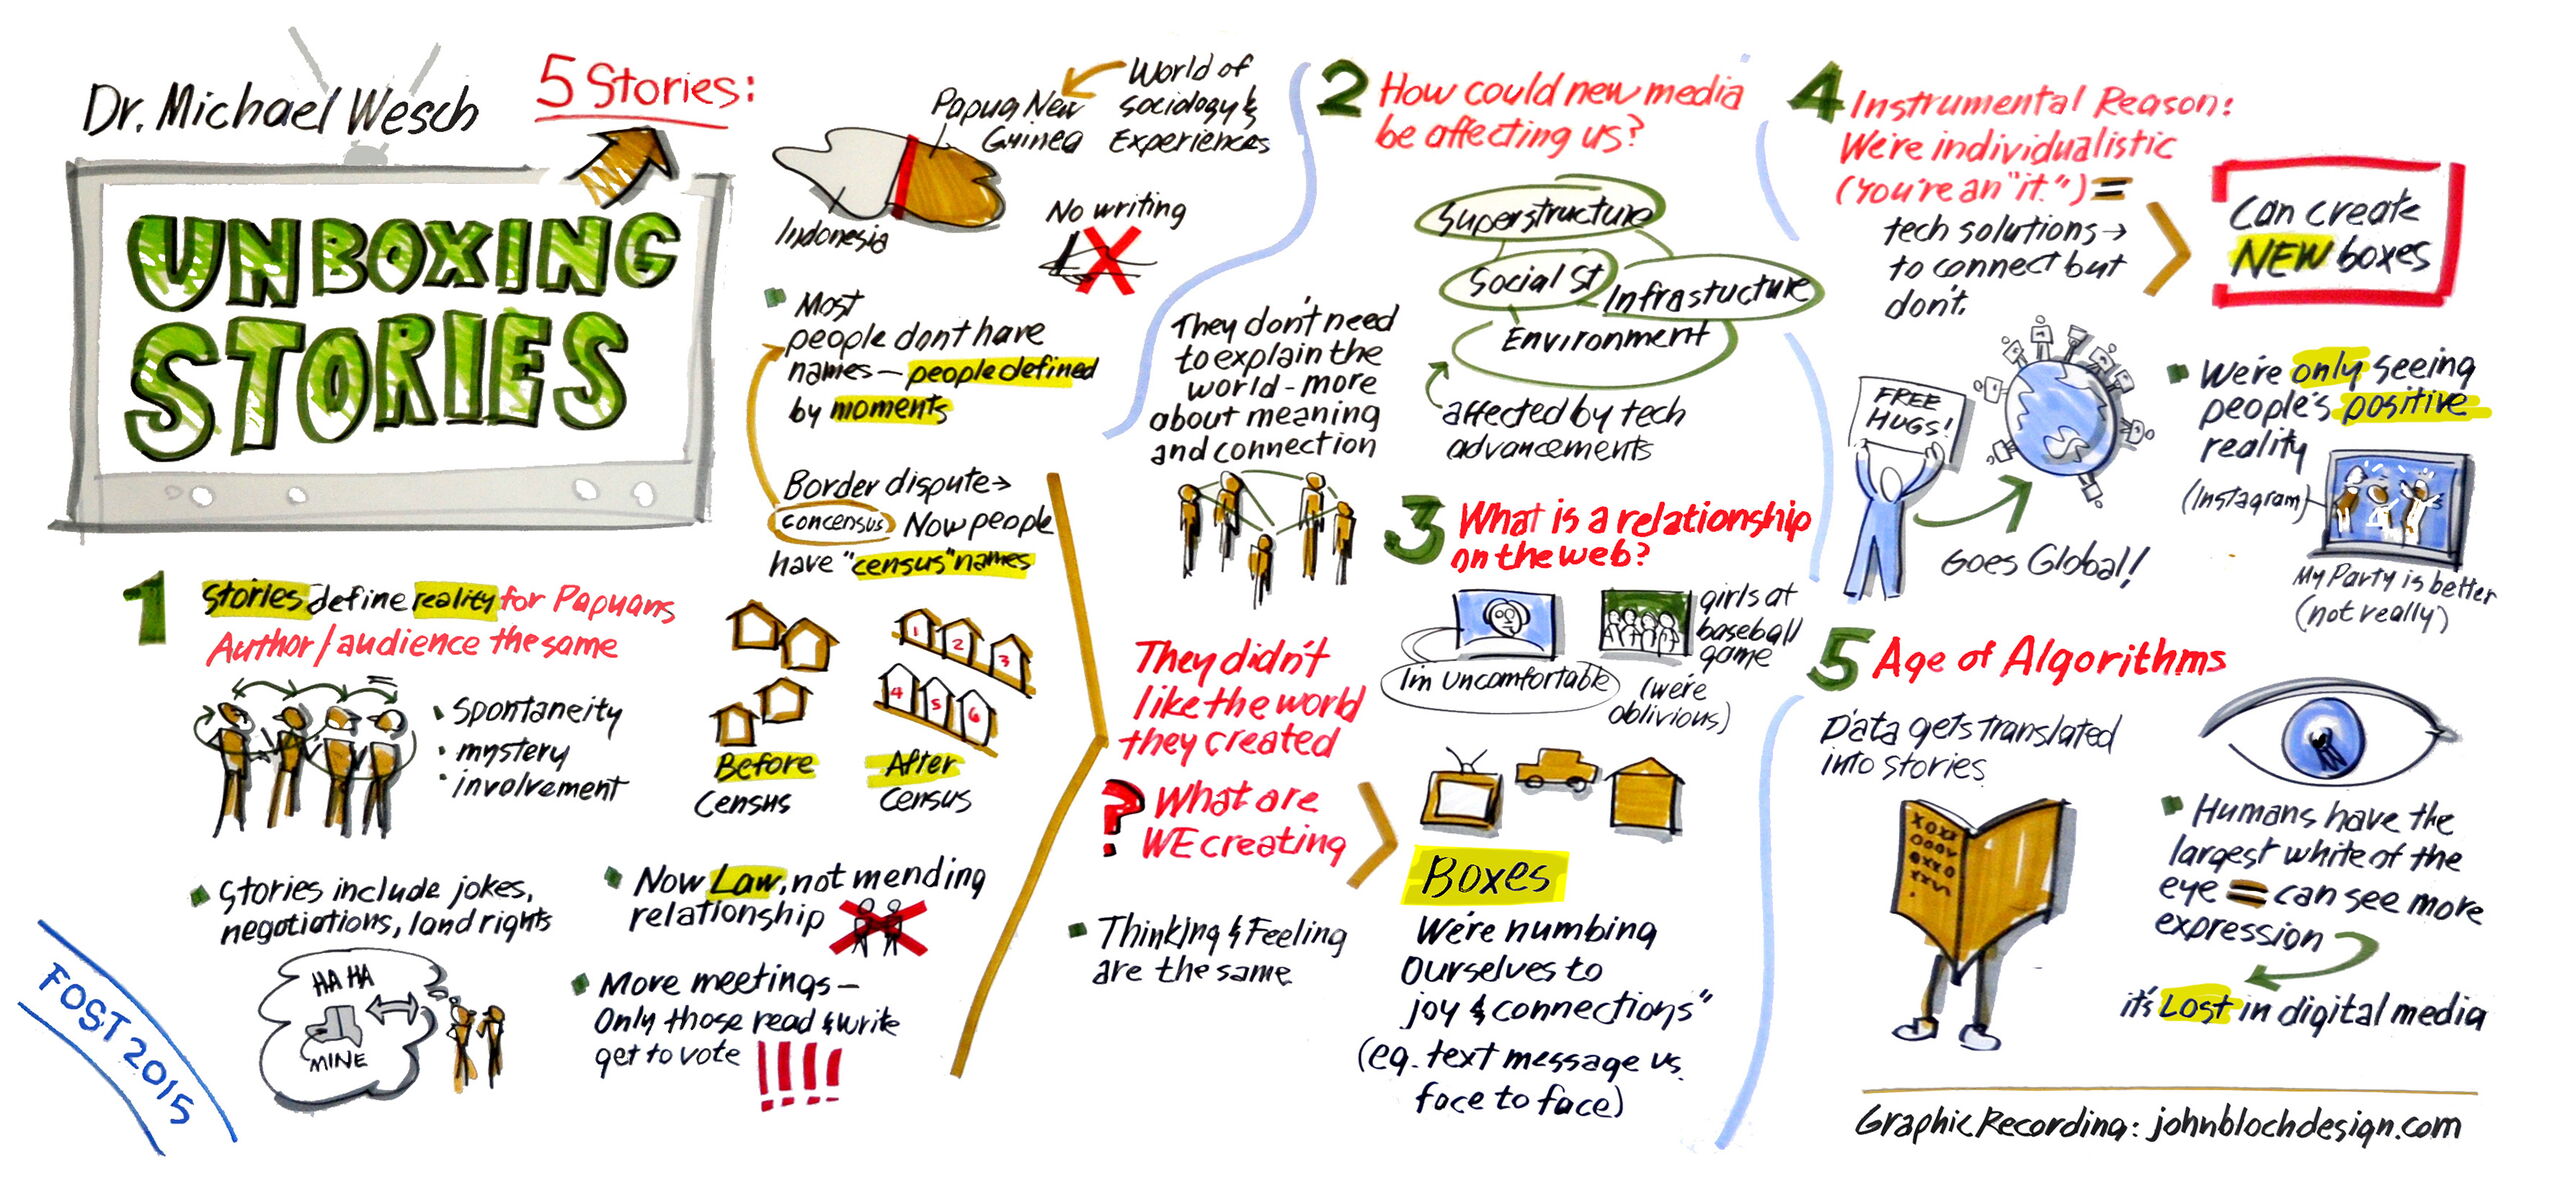 Dr. Michael Wesch
UNBOXING
STORIES
5 Stories:
Papua New
Guinea
World of
sociology &
Experiences
Indonesia
No writing
Most
people dont have
names — people defined
by moments
Border dispute →
concensus Now people
have "census" names
1 Stories define reality for Papuans
Author / audience the same
• Spontaneity
• mystery
• involvement
Before
Census
After
Census
1
2
3
4
5
6
Stories include jokes,
negotiations, land rights
HA HA
MINE
Now Law, not mending
relationship
More meetings —
Only those read & write
get to vote !!!!
FOST 2015
2 How could new media
be affecting us?
Superstructure
Social St
Infrastucture
Environment
affected by tech
advancements
They don't need
to explain the
world - more
about meaning
and connection
They didn't
like the world
they created
? What are
WE creating
Thinking & Feeling
are the same
3 What is a relationship
on the web?
I'm uncomfortable
girls at
baseball
game
(we're
oblivious)
Boxes
We're numbing
Ourselves to
joy & connections"
(eg. text message vs.
face to face)
4 Instrumental Reason:
We're individualistic
(You're an "it.") =
tech solutions →
to connect but
don't.
Can create
NEW boxes
FREE
HUGS!
Goes Global!
We're only seeing
people's positive
reality
(Instagram)
My Party is better
(not really)
5 Age of Algorithms
Data gets translated
into stories
Humans have the
largest white of the
eye = can see more
expression
it's Lost in digital media
Graphic Recording: johnblochdesign.com